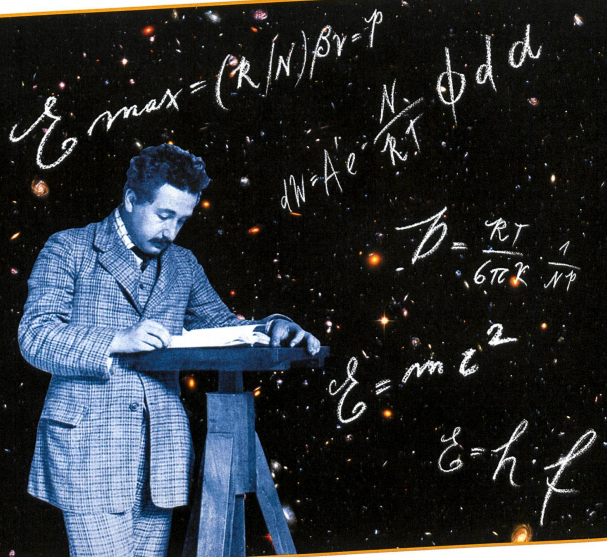 Emax=(R/N)βν=P
dW=A'e-N/RT ϕdd
D=RT/6πK·1/NP
E=mc²
E=h·f